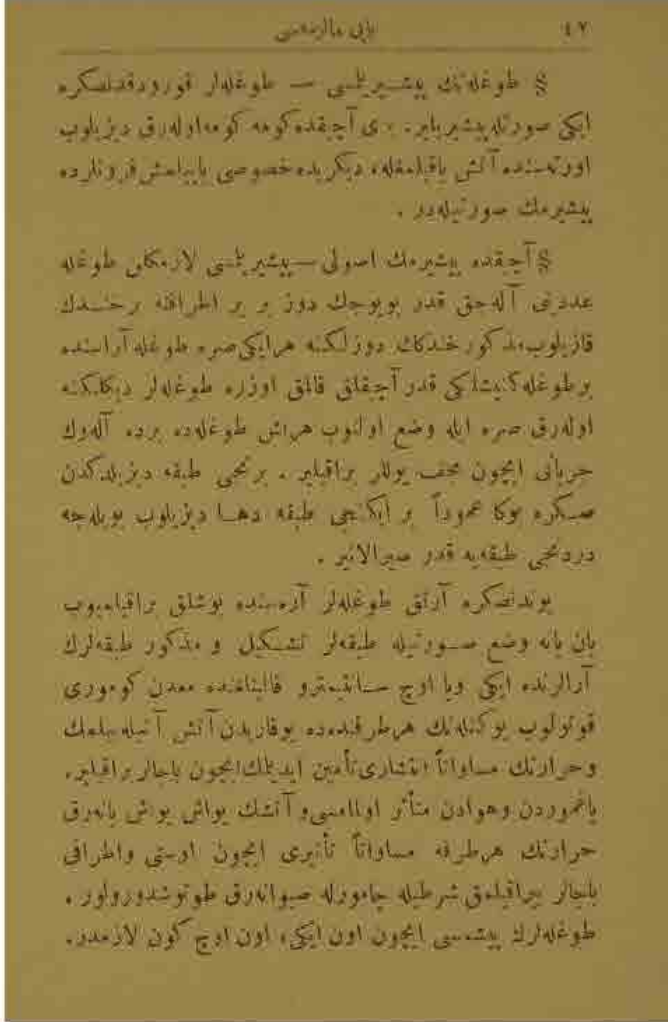 ٤٧ یاپی مالزمه‌سی
§ طوغله‌نك پیشیریلمسی — طوغله‌لر قورودقدنصكره
ایكی صورتله پیشیریلیر. ی آچیقده كومه كومه اوله‌رق دیزیلوب
اورته‌سنده آتش یاقیلمغله، دیكریده خصوصی یاپیلمش فرونلرده
پیشیرمك صورتیله‌در .
§ آچیقده پیشیرمك اصولی — پیشیریلمسی لازمكلن طوغله
عددینی آله‌جق قدر بویوجك دوز بر یر اطرافنه برخندك
قازیلوب مذكور خندكك دوزلكنه هر ایكی صره طوغله آراسنده
برطوغله كنیشلكی قدر آچیقلق قالمق اوزره طوغله‌لر دیكلكنه
اوله‌رق صره ایله وضع اولنوب هر اش طوغله‌ده برده آله‌وك
جریانی ایچون مجف یوللر براقیلیر . برنجی طبقه دیزیلدكدن
صكره بوكا عموداً بر ایكنجی طبقه دها دیزیلوب بویله‌جه
دردنجی طبقه‌یه قدر صیرالانیر .
بوندنصكره آرتق طوغله‌لر آره‌سنده بوشلق براقیلمیوب
یان یانه وضع صورتیله طبقه‌لر تشكیل و مذكور طبقه‌لرك
آرالرنده ایكی ویا اوچ سانتیمترو قالینلغنده معدن كوموری
قونولوب بوكتله‌نك هر طرفنده‌ده یوقاریدن آتش آتیله‌بیلمك
وحرارتك مساواتاً انتشاری تأمین ایدیلمك ایچون باجالر براقیلیر.
یاغموردن وهوادن متأثر اولمامسی و آتشك یواش یواش یانه‌رق
حرارتك هر طرفه مساواتاً تأثیری ایچون اوستی واطرافی
باجالر براقیلمق شرطیله چامورله صیوانه‌رق طوتوشدورولور .
طوغله‌لرك پیشمسی ایچون اون ایكی، اون اوچ كون لازمدر.